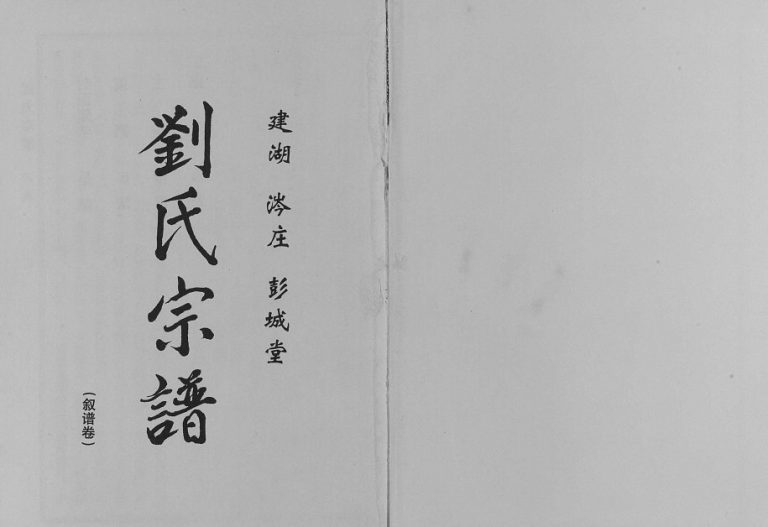 建湖 涔庄 彭城堂
劉氏宗譜
（叙谱卷）